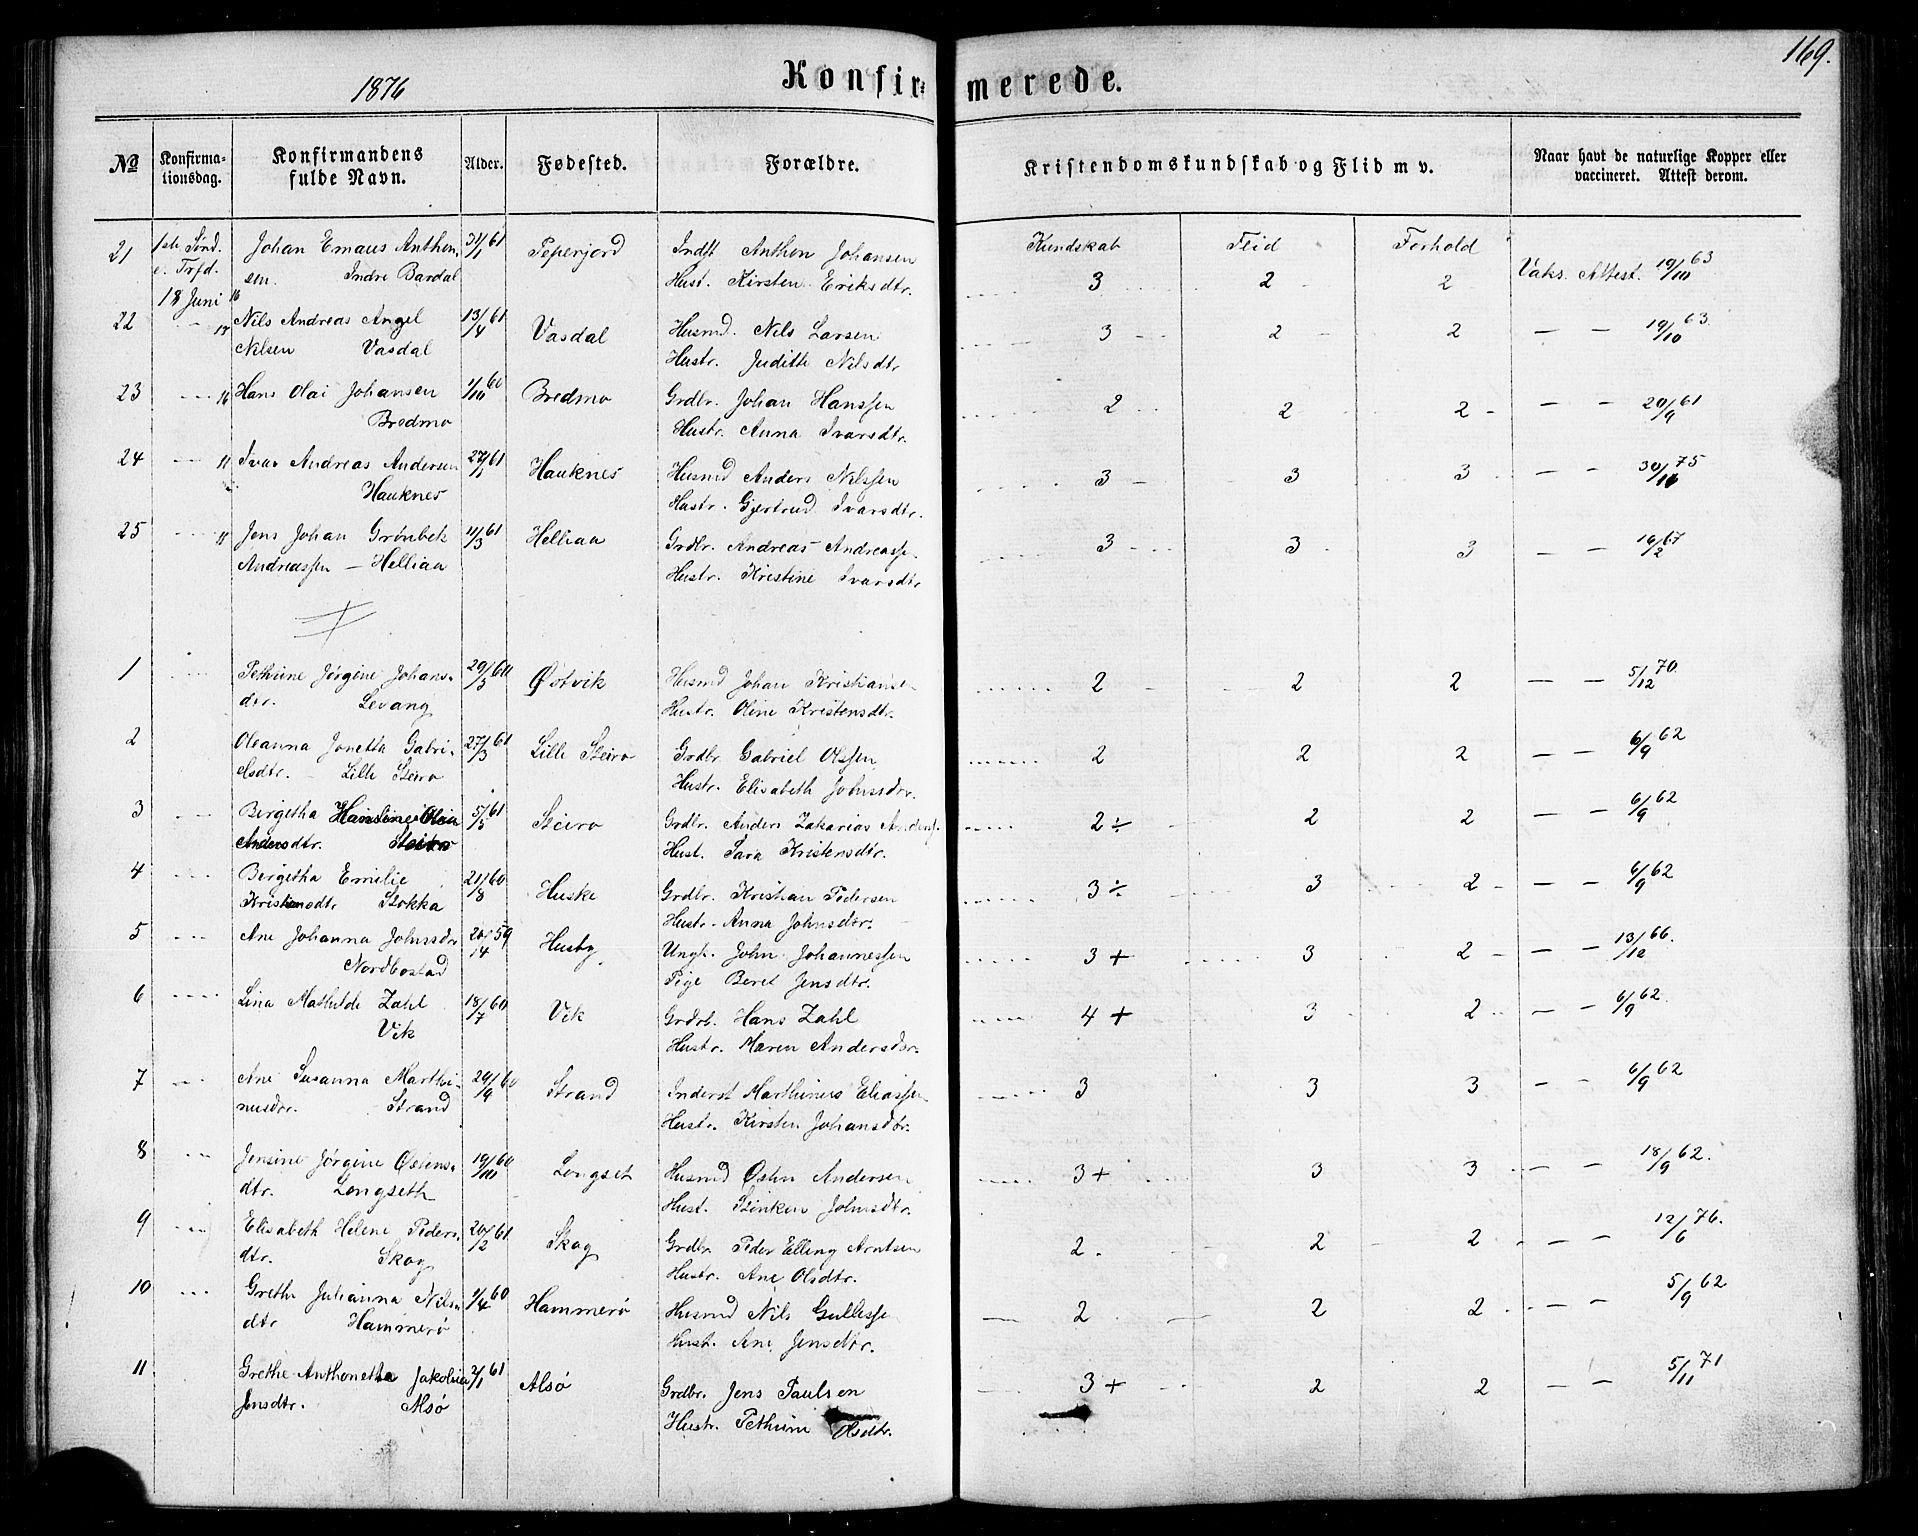 169.
1876 Konfir= merede.
No Konfirma- Konfirmandens Alder. Fødested. Forældre. Kristendomskundskab og Flid m v. Naar havt de naturlige Kopper eller
tionsdag. fulde Navn. vaccineret. Attest derom.
Kundskab Flid Forhold
21 1ste Sønd. Johan Emaus Anthon- 31/1 61 Indst Anthon Johansen
e. Trfd. sen. Indre Bardal Hust. Kirsten Eriksdtr. 3 2 2 Vaks. Attest. 19/10 63
18 Juni
22 Nils Andreas Angel 13/4 61 Vasdal Husmd. Nils Larsen 3 2 2 — — 19/10 63.
Nilsen Vasdal Hustr. Judithe Nilsdtr
23 Hans Olai Johansen 1/10 60 Bredmo Grdbr. Johan Hanssen 2 2 2 — — 20/9 61
Bredmo Hustr. Anna Ivarsdtr.
24 Ivar Andreas Andersen 27/1 61 Hauknes Husmd Anders Nilssen 3 3 3 — — 30/11 75
Hauknes Hustr. Gjertrud Ivarsdtr.
25 Jens Johan Grønbek 11/3 61 Helliaa Grdbr. Andreas Andreassen 3 3 3 — — 16/2 67
Andreassen — Helliaa Hustr. Kristine Ivarsdtr
1 Pethrine Jørgine Johans- 29/3 60 Østvik Husmd Johan Kristiansen 2 2 2 — — 5/12 70.
dtr. Levang Hustr. Oline Kristensdtr.
2 Oleanna Jonetta Gabri- 27/3 61 Lille Steiro Grdbr Gabriel Olssen 2 2 2 — — 6/9 62
elsdtr. — Lille Steiro Hustr. Elisabeth Johnsdtr.
3 Birgetha Hansine Olea 5/5 61 Steiro Grdbr. Anders Zakarias Anders. 2÷ 2 2 — — 6/9 62
Andersdtr. Steiro Hust. Sara Kristensdtr.
4 Birgitha Emelie 21/8 60 Huske Grdbr. Kristian Pedersen 3÷ 3 2 — — 6/9 62
Kristiansdtr Stokka Hustr. Anna Johnsdtr.
5 Ane Johanna Johnsdtr 59 Husby Ungk. John Johannessen 3+ 3 2 — — 13/12 66.
Nordbostad Pige Beret Jensdtr.
6 Lina Mathilde Zahl 18/7 60 Vik Grdrb. Hans Zahl 4+ 3 2 — — 6/9 62.
Vik Hustr. Maren Andersdtr.
7 Ane Susanna Marthi- 24/9 60 Strand Inderst Marthinus Eliassen 3 3 3 — — 6/9 62
nusdtr. Strand Hustr. Kirsten Johansdtr.
8 Jensine Jørgine Østens- 19/10 60 Longset Husmd Østen Andersen 3+ 3 3 — — 18/9 62.
dtr. Longseth Hust. Stinken Johnsdtr.
9 Elisabeth Helene Peders. 20/2 61 Skog Grdbr Peder Elling Arntsen 2. 2 2 — — 12/6 76.
dtr. Skog Hustr. Ane Olsdtr.
10 Grethe Julianna Nils- 1/4 60 Hammerø Husmd Nils Gullessen 2 2 2 — — 5/9 62
dtr Hammerø Hust. Ane Jensdtr.
11 Grethe Anthonetta Jakobia 2/1 61 Alsø Grdbr. Jens Paulsen 3+ 2 2 — — 5/11 71
Jensdtr. Alsø Hustr. Pethrine Olsdtr.